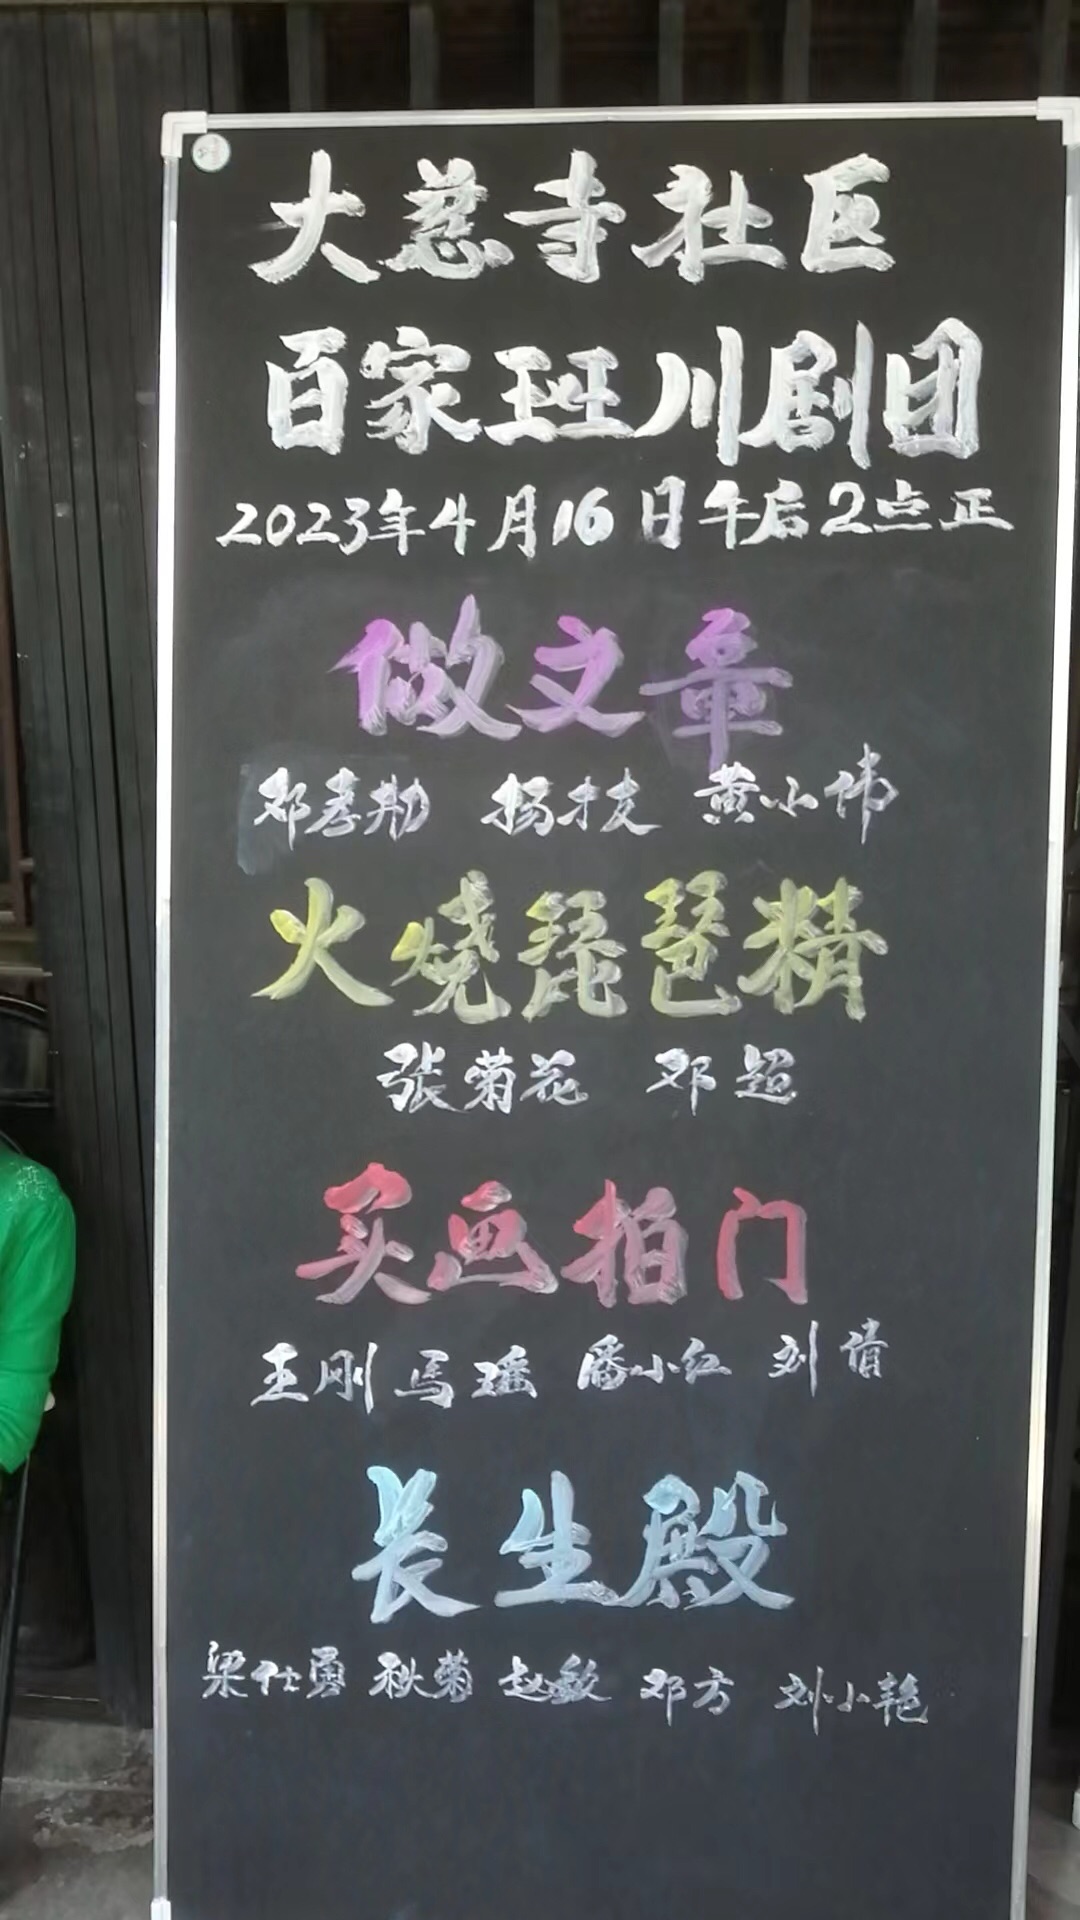 大慈寺社区
百家班川剧团
2023年4月16日午后2点正
做文章
邓孝勋 杨才友 黄小伟
火烧琵琶精
张菊花 邓超
买画拍门
王刚 马瑶 潘小红 刘倩
长生殿
梁仕勇 秋菊 赵敏 邓方 刘小艳